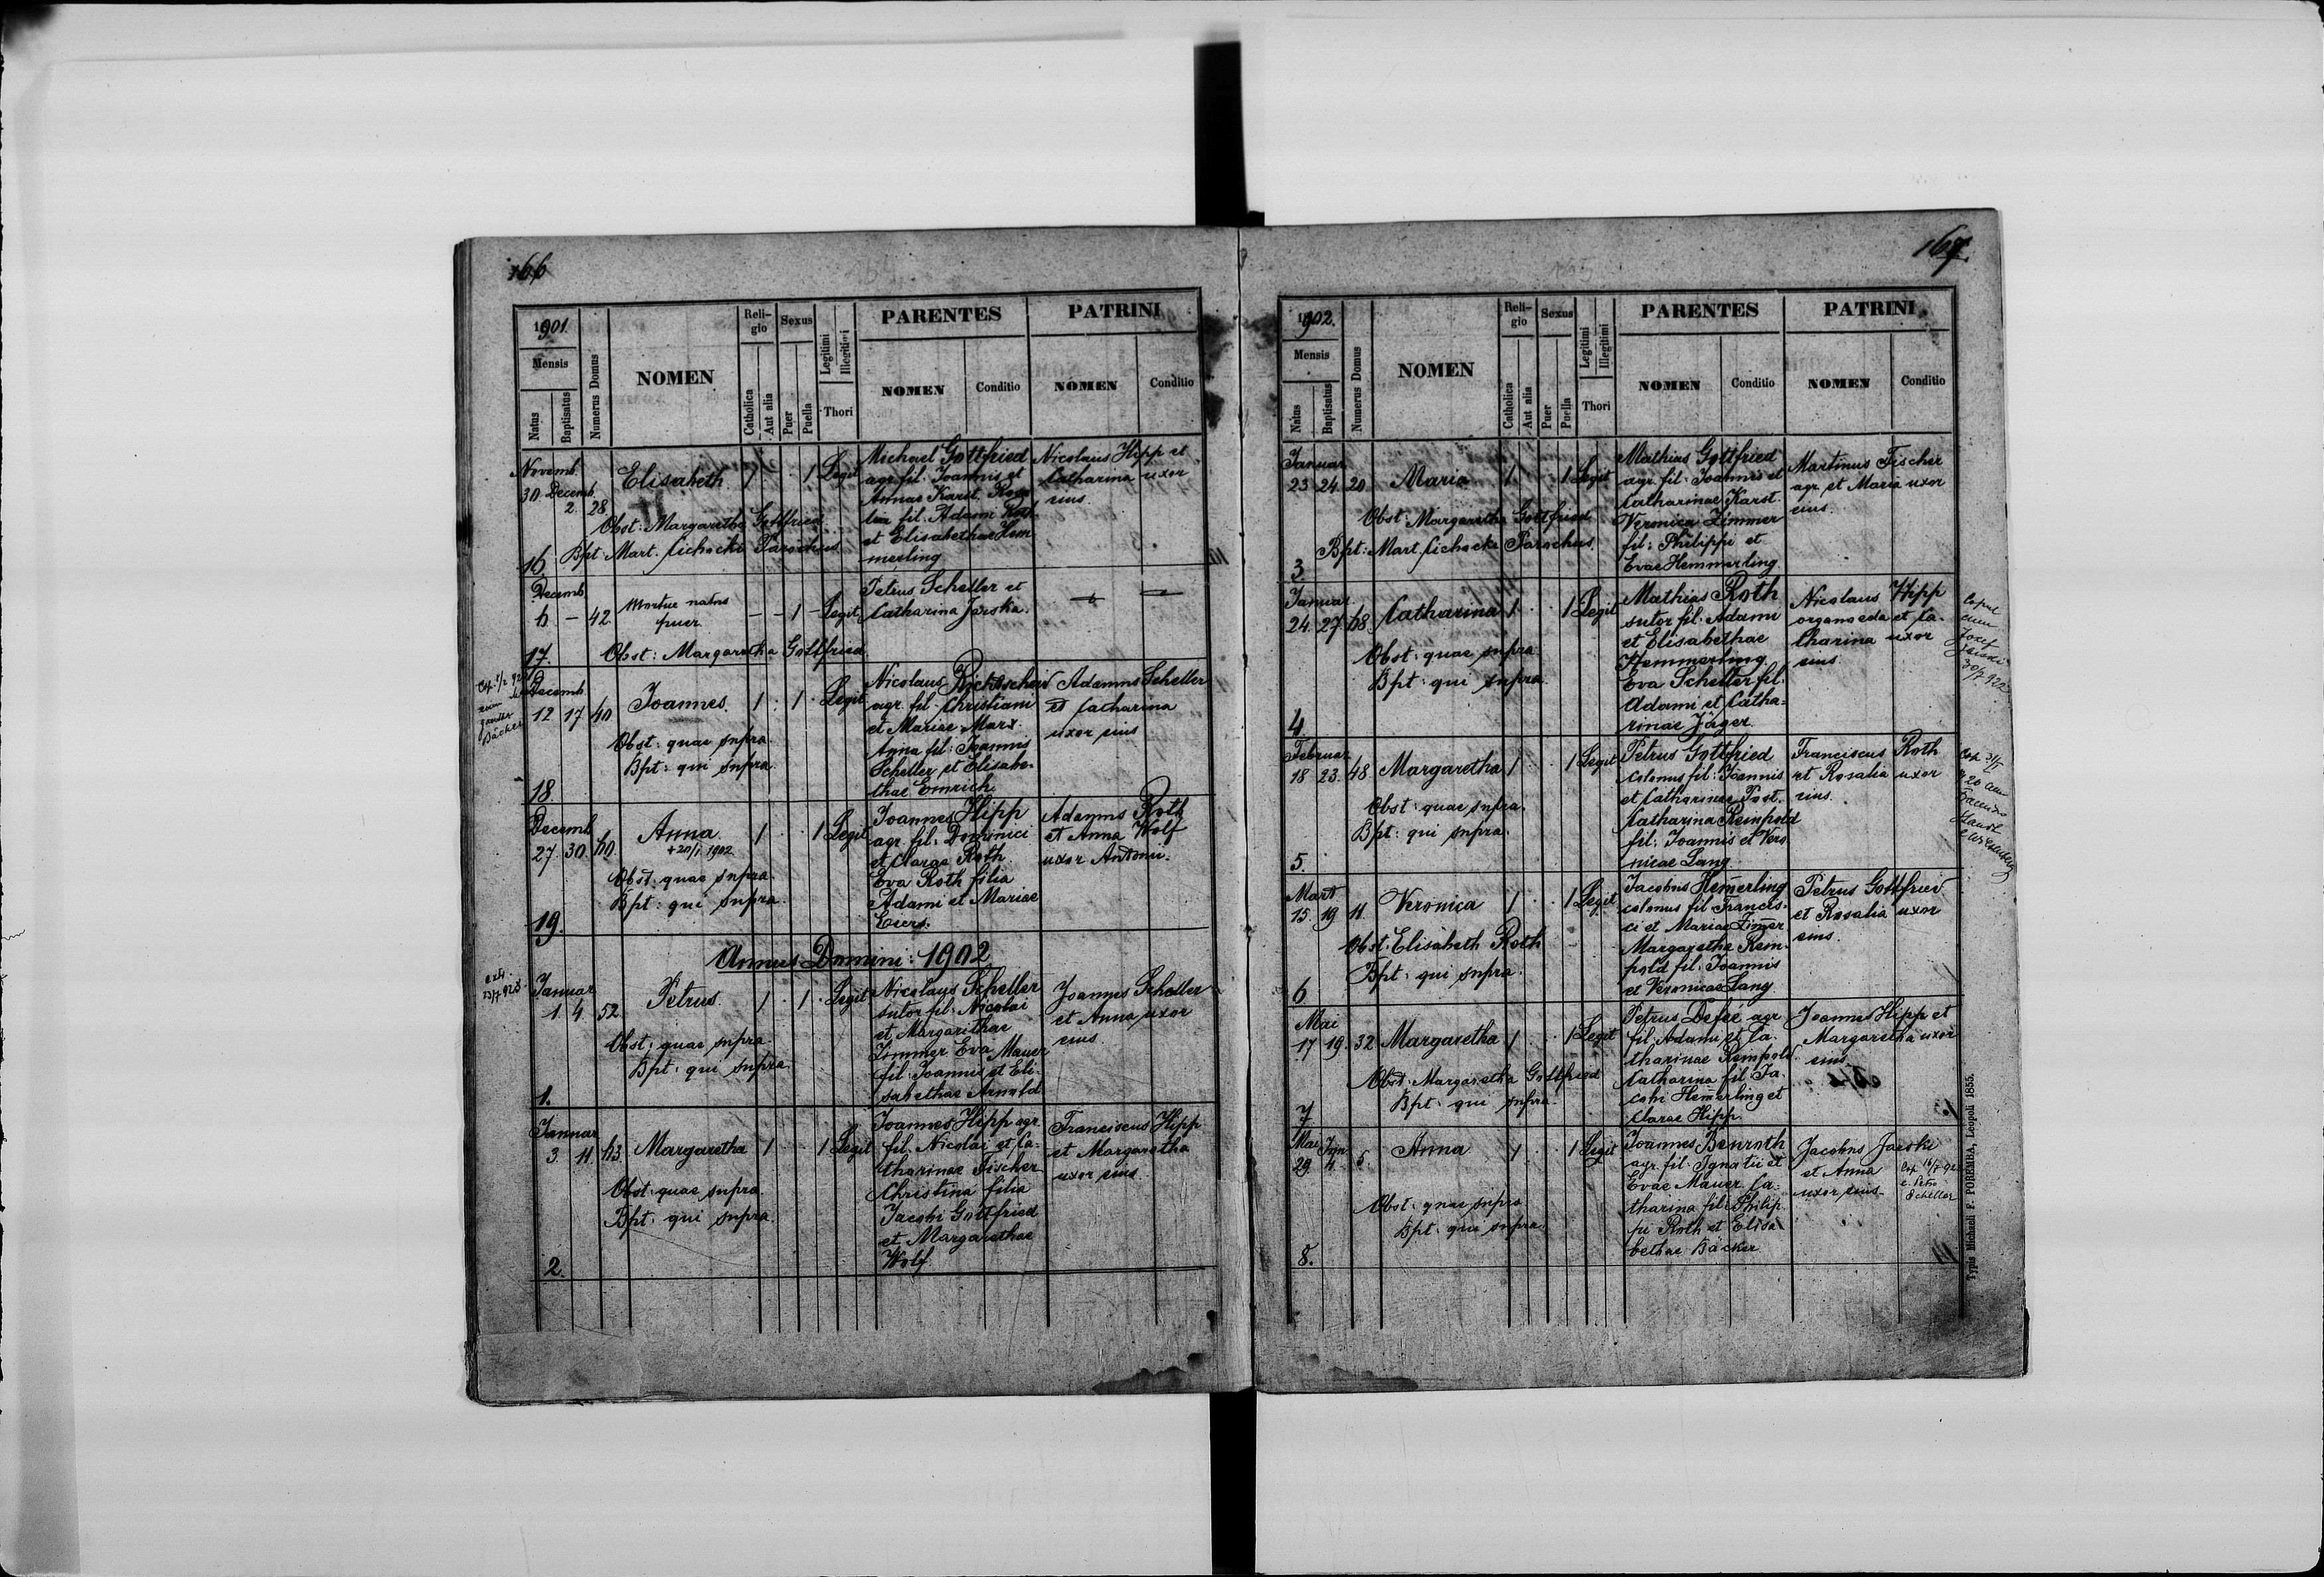 166
1901.
Mensis
Natus
Baptisatus
Numerus Domus
NOMEN
Reli-
gio
Catholica
Aut alia
Sexus
Puer
Puella
Legitimi
Illegitimi
Thori
PARENTES
NOMEN
Conditio
PATRINI
NOMEN
Conditio
Novemb.
30 Decemb.
2. 28.
Elisabeth 1 1 Legit
Obst: Margaretha Gottfried
Bpt: Mart. Cichocki Parochus
16.
Michael Gottfried
agr. fil. Joannis et
Annae Karst. Rosa
lia fil. Adami Roth
et Elisabethae Hem
merling
Nicolaus Hipp et
Catharina uxor
eius.
Decemb.
6 – 42
Mortue natus
puer.
– – 1 – Legit
Obst: Margaretha Gottfried
17.
Petrus Scheller et
Catharina Jarska.
Decemb.
12 17 40 Joannes. 1 1 Legit
Obst: quae supra.
Bpt: qui supra
18.
Nicolaus
agr. fil. Christiani
et Mariae Marx.
Anna fil: Joannis
Scheller et Elisabe-
thae Emrich.
Adamus Scheller
et Catharina
uxor eius
Decemb.
27. 30. 60. Anna 1 1 Legit
+20/1 1902.
Obst: quae supra.
Bpt: qui supra.
19.
Joannes Hipp
agr. fil. Dominici
et Clarae Roth.
Eva Roth filia
Adami et Mariae
Adamus Roth
et Anna Wolf
uxor Antonii.
Annus Domini: 1902
Januar
1. 4. 52 Petrus. 1 1 Legit
Obst: quae supra.
Bpt: qui supra.
1.
Nicolaus Scheller
sutor fil. Nicolai
et Margarithae
Zimmer Eva Mauer
fil: Joannis et Eli-
sabethae Arnold
Joannes Scheller
et Anna uxor
eius.
Januar
3. 11. 63 Margaretha 1 1 Legit
Obst: quae supra.
Bpt: qui supra.
2.
Joannes Hipp agr.
fil. Nicolai et Ca-
tharinae Fischer
Christina filia
Jacobi Gottfried
et Margarethae
Wolf
Franciscus Hipp
et Margaretha
uxor eius.
167.
1902.
Mensis
Natus
Baptisatus
Numerus Domus
NOMEN
Reli-
gio
Catholica
Aut alia
Sexus
Puer
Puella
Legitimi
Illegitimi
Thori
PARENTES
NOMEN
Conditio
PATRINI
NOMEN
Conditio
Januar
23 24. 20 Maria 1 1 Legit
Obst: Margaretha Gottfried
Bpt: Mart Cichocki Parochus.
3.
Mathias Gottfried
agr. fil. Joannis et
Catharinae Karst.
Veronica Zimmer
fil: Philippi et
Evae Hemmerling.
Martinus Fischer
agr. et Maria uxor
eius.
Januar
24. 27. 68. Catharina 1 1 Legit
Obst: quae supra.
Bpt: qui supra.
4
Mathias Roth
sutor fil. Adami
et Elisabethae
Hemmerling
Eva Scheller fil.
Adami et Catha-
rinae Jäger.
Nicolaus Hipp
organoeda et Ca-
tharina uxor
eius.
Februar
18 23. 48. Margaretha 1 1 Legit
Obst: quae supra.
Bpt: qui supra.
5.
Petrus Gottfried
colonus fil: Joannis
et Catharinae Post.
Catharina Rempold
fil: Joannis et Vero
nicae Lang
Franciscus Roth
et Rosalia uxor
eius.
Mart
15. 19 11. Veronica 1 1 Legit
Obst: Elisabeth Roth
Bpt: qui supra.
6
Jacobus Hemerling
colonus fil Francis-
ci et Mariae Zimer
Margaretha Rem-
pold fil. Joannis
et Veronicae Lang.
Petrus Gottfried
et Rosalia uxor
eius.
Mai
17 19. 32 Margaretha 1 1 Legit
Obst: Margaretha Gottfried
Bpt: qui supra.
7
Petrus Defeé agr
fil. Adami et Ca-
tharinae Rempold.
Catharina fil. Ja-
cobi Hemerling et
Clarae Hipp.
Joannes Hipp et
Margaretha uxor
eius
Mai Jun
29. 4. 5. Anna 1 1 Legit
Obst: quae supra
Bpt: qui supra.
8.
Joannes Benroth
agr. fil. Ignatii et
Evae Mauer Ca-
tharina fil: Philip
pi Roth et Elisa
bethae Bäcker
Jacobus Jarski
et Anna
uxor eius.
Scheller
Typis Michaeli F. POREMBA, Leopoli 1855.